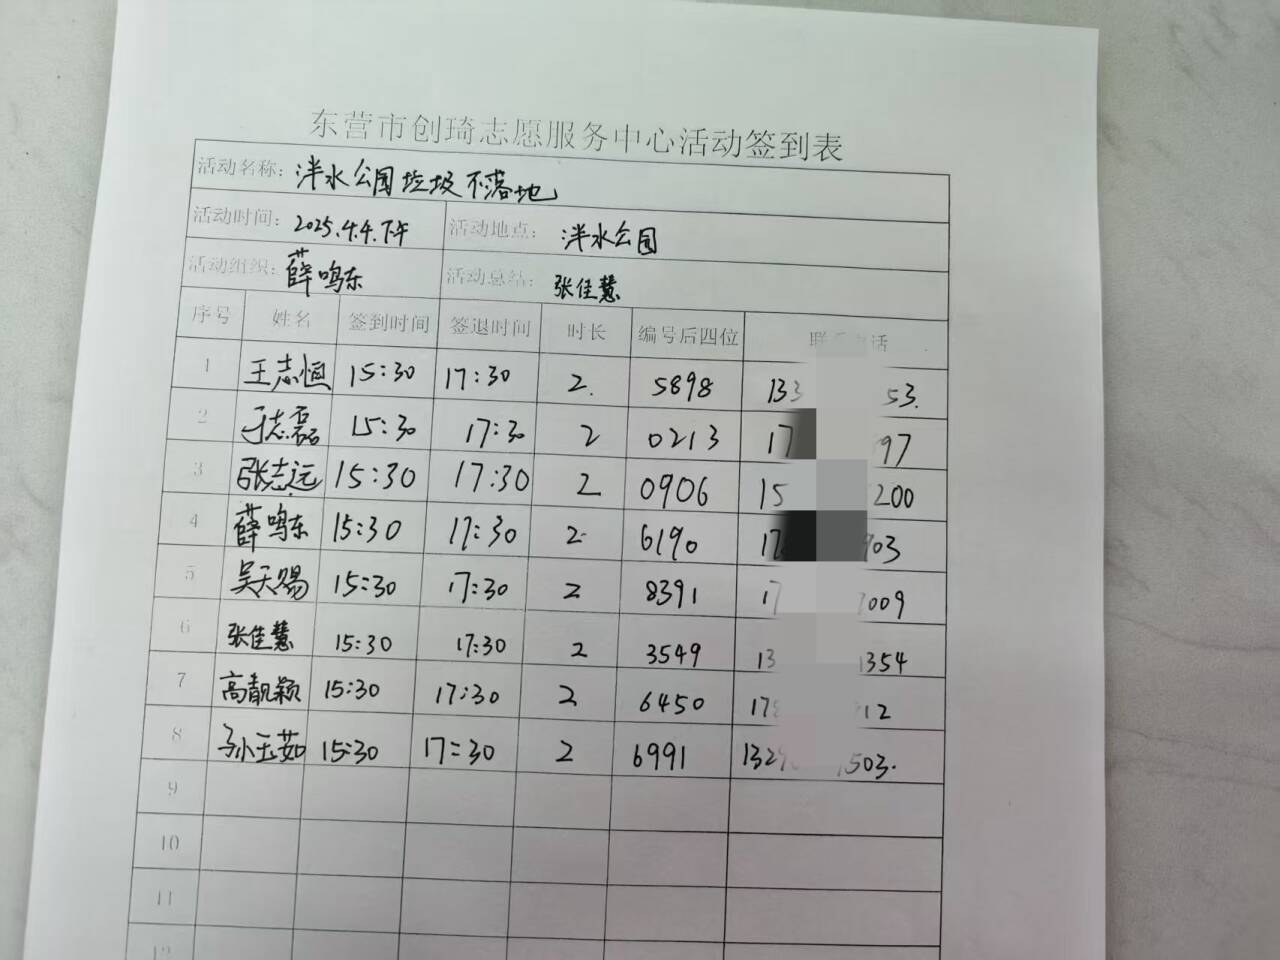 东营市创琦志愿服务中心活动签到表
活动名称: 泮水公园垃圾不落地
活动时间: 2025.4.4.下午 活动地点: 泮水公园
活动组织: 薛鸣东 活动总结: 张佳慧
序号 姓名 签到时间 签退时间 时长 编号后四位 联 话
1 王志恒 15:30 17:30 2. 5898 133 53.
2 于志磊 15:30 17:30 2 0213 17 97
3 张志远 15:30 17:30 2 0906 15 200
4 薛鸣东 15:30 17:30 2 6190 17 903
5 吴天赐 15:30 17:30 2 8391 17 009
6 张佳慧 15:30 17:30 2 3549 13 1354
7 高靓颖 15:30 17:30 2 6450 178 12
8 孙玉茹 15:30 17:30 2 6991 1329 503.
9
10
11
12